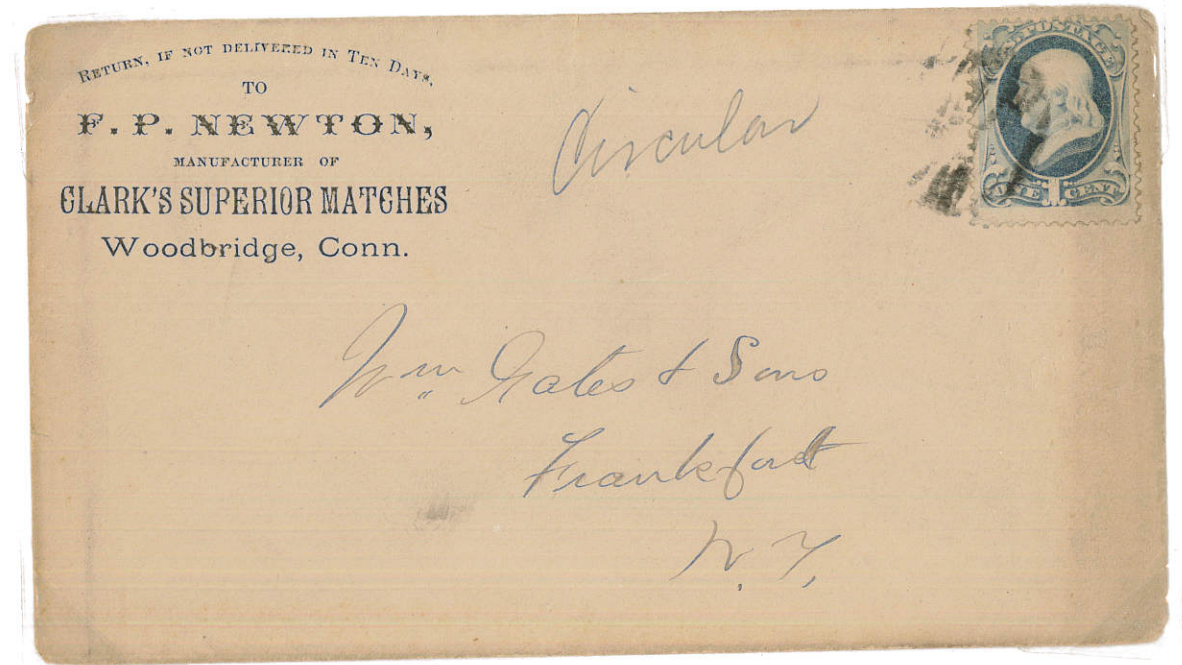 RETURN, IF NOT DELIVERED IN TEN DAYS,
TO
F. P. NEWTON,
MANUFACTURER OF
CLARK'S SUPERIOR MATCHES
Woodbridge, Conn.
Circular
POSTAGE
ONE 1 CENT
Wm Gates & Sons
Frankfort
N. Y.